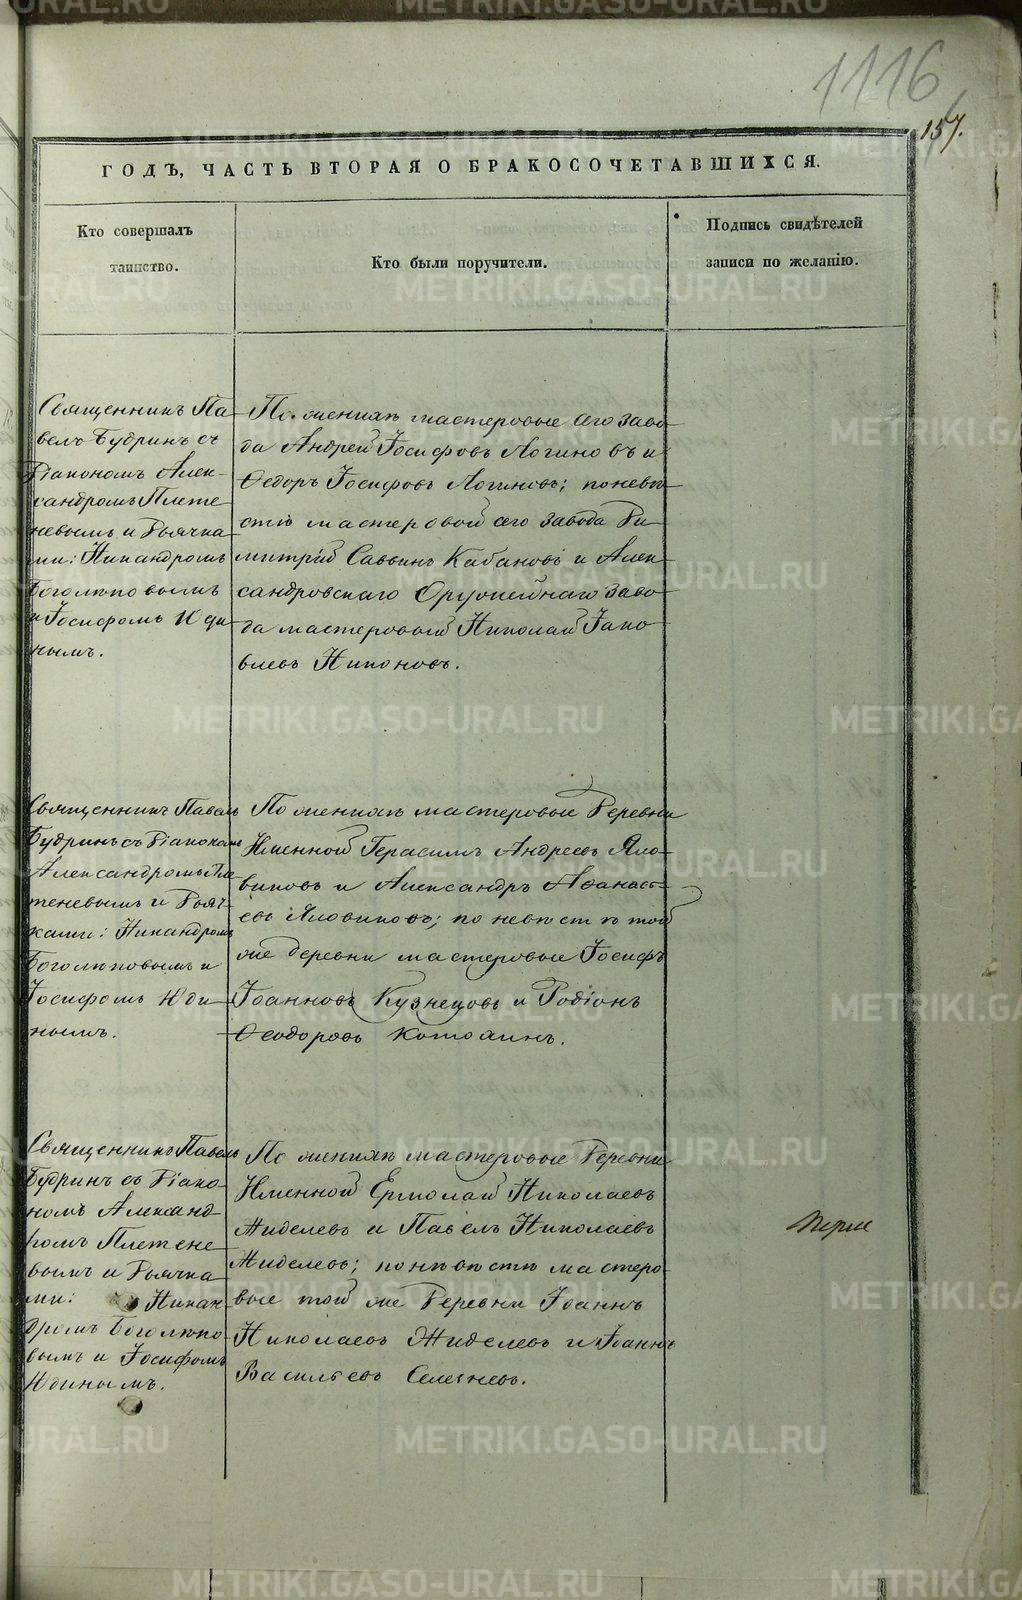 1116
157.
ГОДЪ, ЧАСТЬ ВТОРАЯ О БРАКОСОЧЕТАВШИХСЯ.
Кто совершалъ
таинство.
Кто были поручители.
Подпись свидѣтелей
записи по желанію.
Священникъ Па-
велъ Будринъ съ
Діакономъ Алек-
сандромъ Плете-
невымъ и Дьячка-
ми: Никандромъ
Боголюповымъ
и Іосифомъ Юди-
нымъ.
По женихѣ мастеровые сего заво-
да Андрей Іосифовъ Логиновъ и
Ѳедоръ Іосифовъ Логиновъ; по невѣ-
стѣ мастеровой сего завода Ди-
митрій Саввинъ Кабановъ и Алек-
сандровскаго Оружейнаго заво-
да мастеровый Николай Іако-
влевъ Никоновъ.
Священникъ Павелъ
Будринъ съ Діакономъ
Александромъ Пле-
теневымъ и Дьяч-
ками: Никандромъ
Боголюповымъ и
Іосифомъ Юди-
нымъ.
По женихѣ мастеровые Деревни
Герасимъ Андреевъ Яло-
виковъ и Александръ Аѳанась-
евъ Яловиковъ; по невѣстѣ той
же деревни мастеровые Іосифъ
Іоанновъ Кузнецовъ и Родіонъ
Ѳеодоровъ
Священникъ Павелъ
Будринъ съ Діако-
номъ Александ-
ромъ Плетене-
вымъ и Дьячка-
ми: Никан-
дромъ Боголюпо-
вымъ и Іосифомъ
Юдинымъ.
По женихѣ мастеровые Деревни
Ермолай Николаевъ
Жиделевъ и Павелъ Николаевъ
Жиделевъ; по невѣстѣ мастеро-
вые той же Деревни Іоаннъ
Николаевъ Жиделевъ и Іоаннъ
Васильевъ Селезневъ.
METRIKI.GASO-URAL.RU